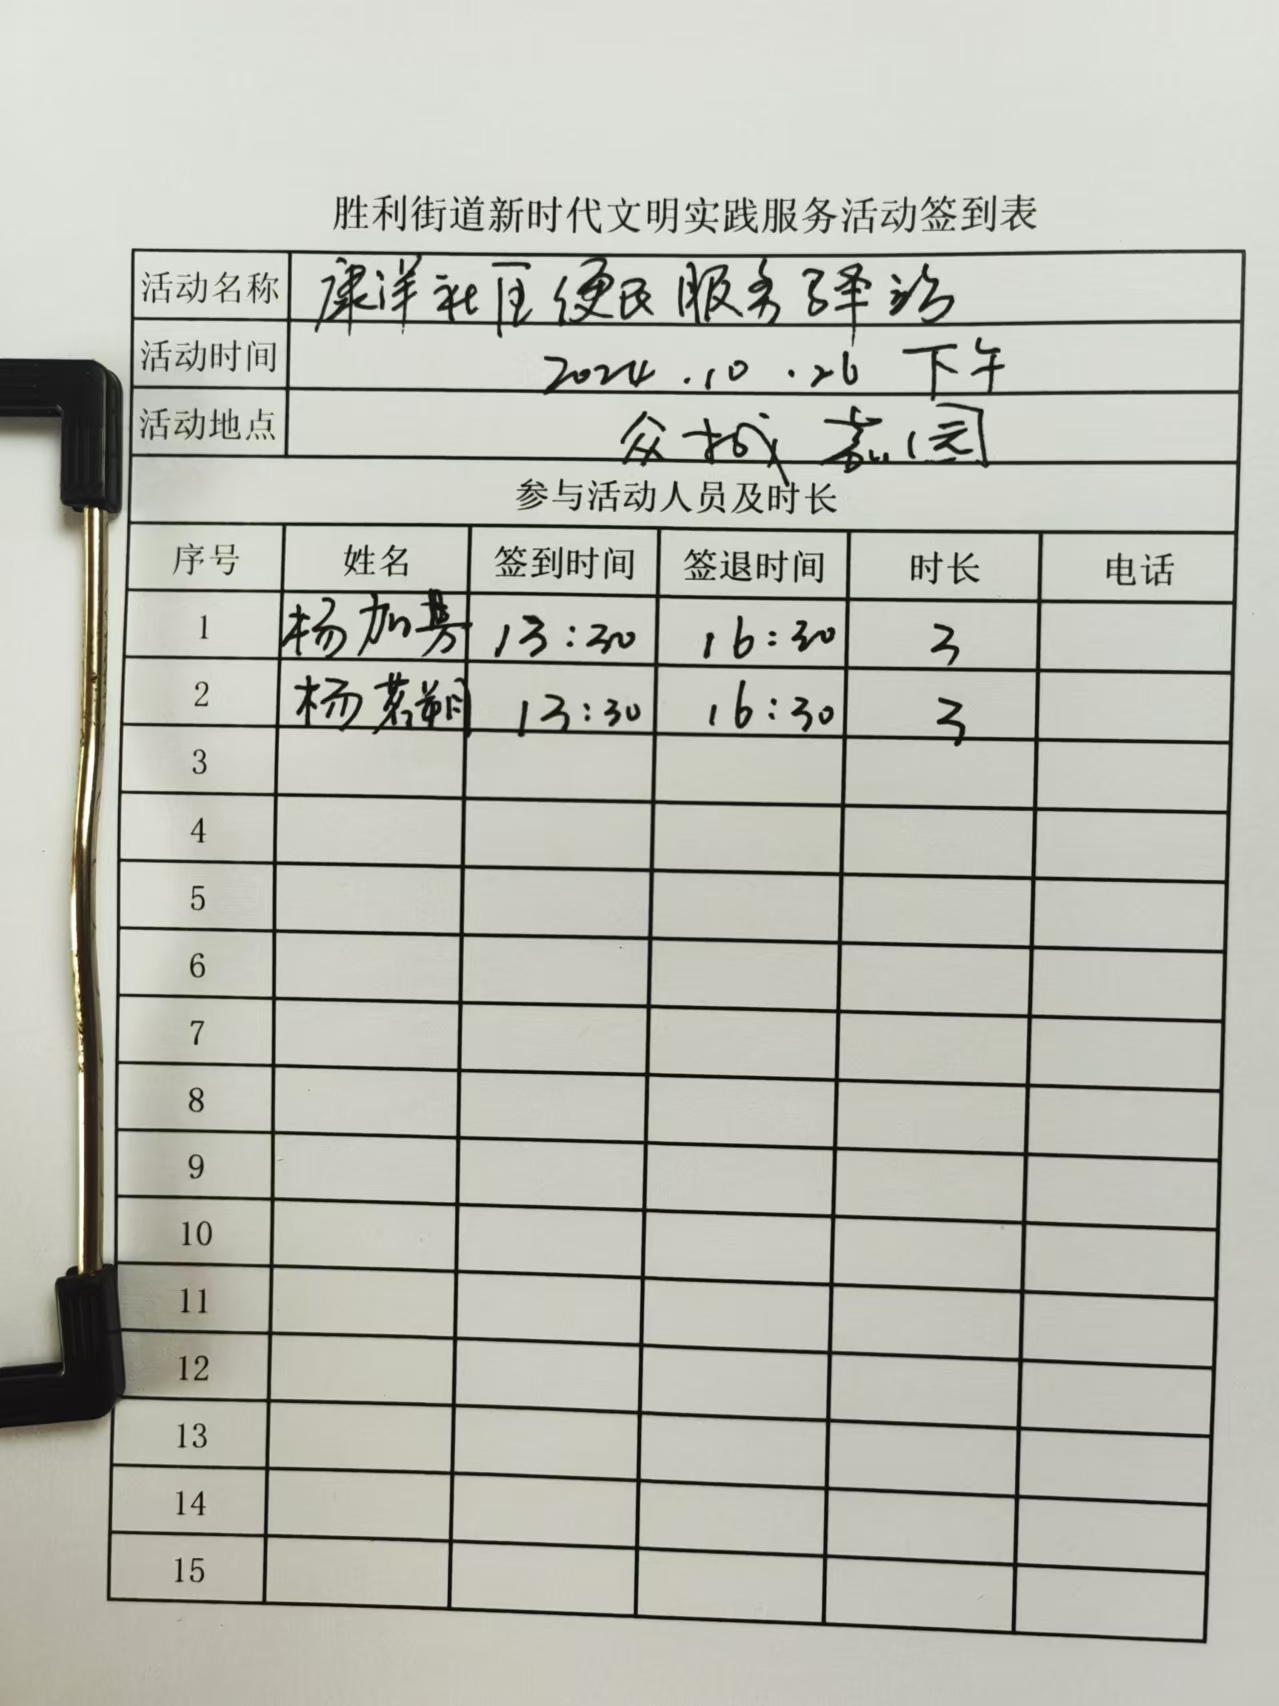 胜利街道新时代文明实践服务活动签到表
活动名称 康洋社区便民服务驿站
活动时间 2024.10.26 下午
活动地点 众城嘉园
参与活动人员及时长
序号 姓名 签到时间 签退时间 时长 电话
1 杨加 13:30 16:30 3
2 杨茗朔 13:30 16:30 3
3
4
5
6
7
8
9
10
11
12
13
14
15